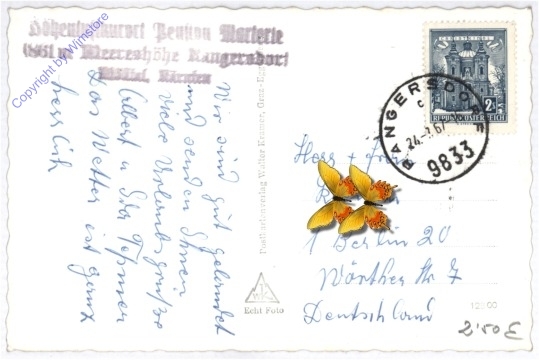 Copyright by Wimstore
Höhenluftkurort Pension Marterle
(1861 m Meereshöhe Rangersdorf
Mölltal, Kärnten
Wir sind gut gelandet
und senden Ihnen
viele Urlaubsgrüße
Albert u
Das Wetter ist ganz
herrlich
Postkartenverlag Walter Kramer, Graz
Echt Foto
REPUBLIK ÖSTERREICH
2
RANGERSDORF
c
9833
Herr + Frau
1 Berlin 20
Wörther Str 7
Deutschland
2'50 €